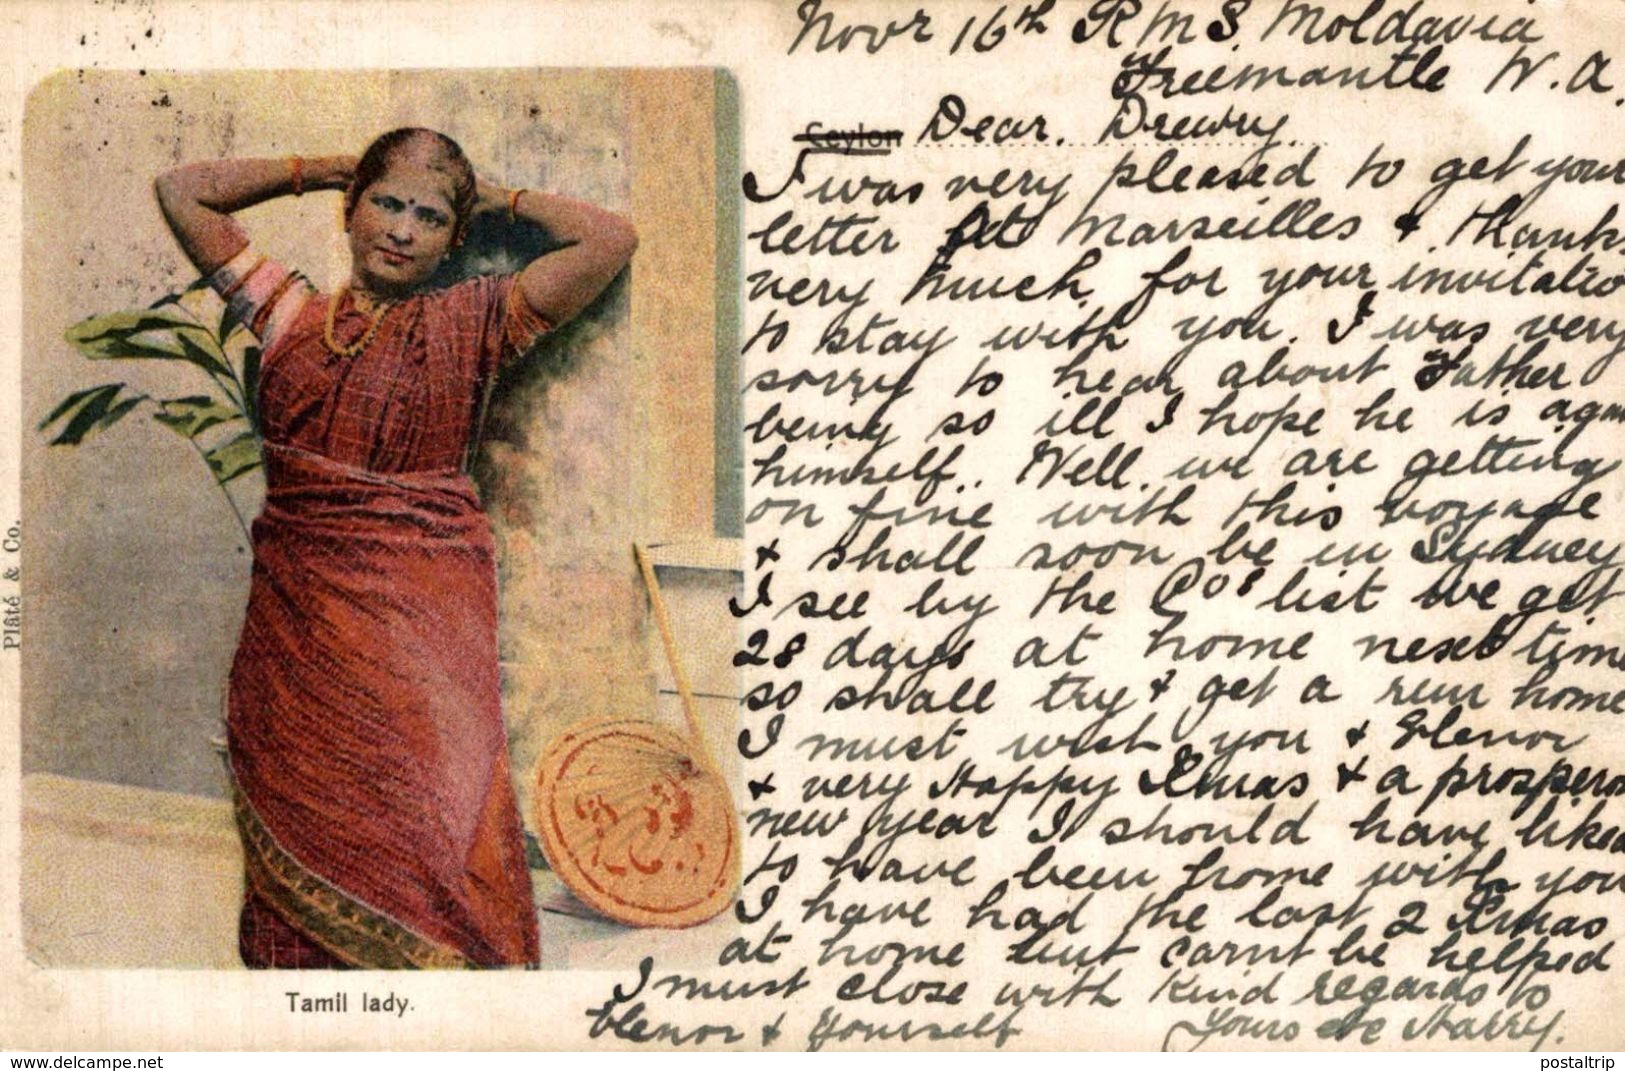 Novr 16th R M S. Moldavia
Freemantle W. A.
Ceylon Dear. Drewry.
I was very pleased to get your
letter at Marseilles & thanks
very much for your invitatio
to stay with you. I was very
sorry to hear about Father
being so ill I hope he is again
himself.. Well we are getting
on fine with this voyage
& shall soon be in Sydney
I see by the Cos list we get
28 days at home next time
so shall try & get a run home
I must wish you & Elenor
& very Happy Xmas & a prospero
new year I should have liked
to have been home with you
I have had the last 2 Xmas
at home but carnt be helped
I must close with Kind regards to
Elenor & yourself Yours etc Harry.
Plâté & Co.
Tamil lady.
postaltrip.delcampe.net
postaltrip